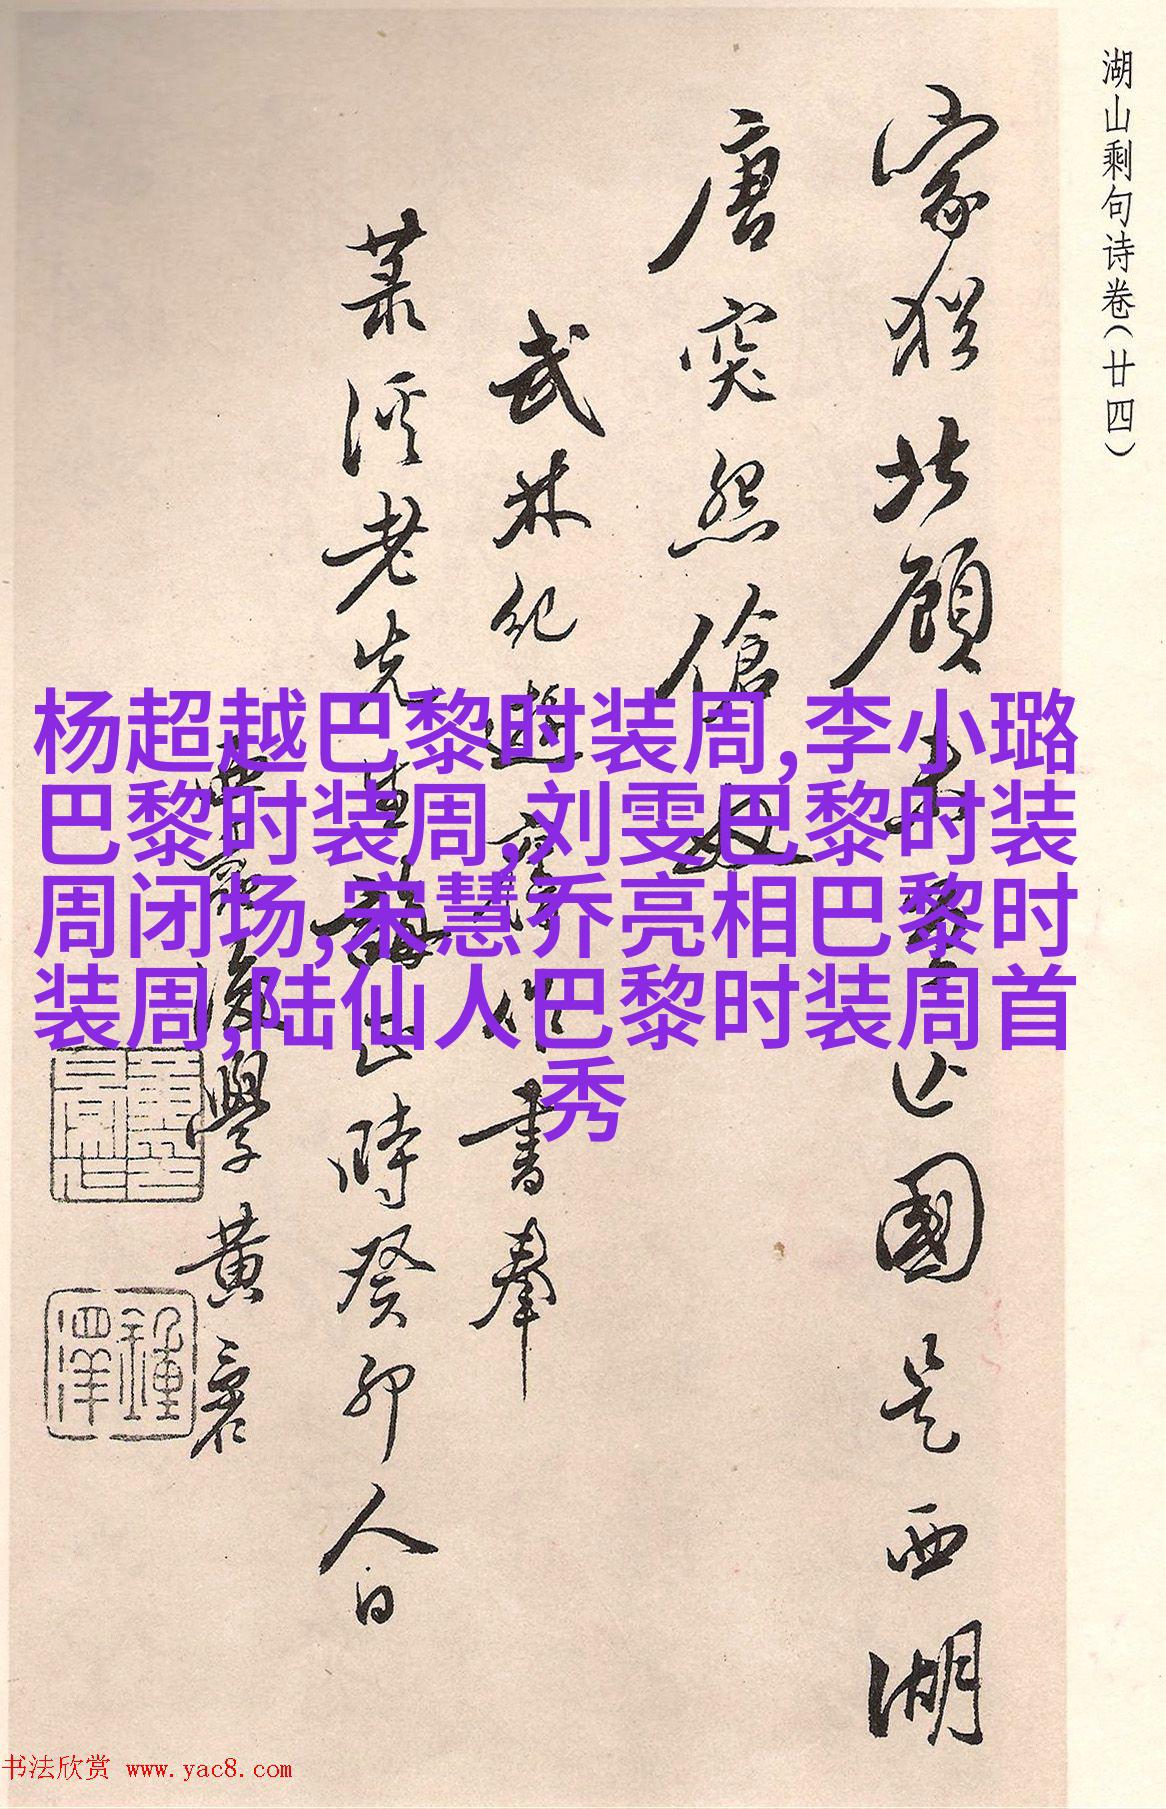 湖山剩句诗卷(廿四)
家犹北顾
亡國是西湖
唐突怨傖父
武林纪遊
作書奉
菉溪老先生誨正時癸卯人日
後學黄裔
杨超越巴黎时装周,李小璐
巴黎时装周,刘雯巴黎时装
周闭场,宋慧乔亮相巴黎时
装周,陆仙人巴黎时装周首
秀
書法欣赏 www.yac8.com